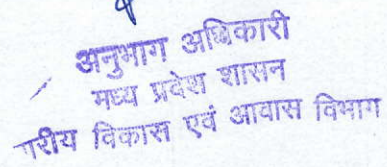 अनुभाग अधिकारी
मध्य प्रदेश शासन
गरीय विकास एवं आवास विभाग